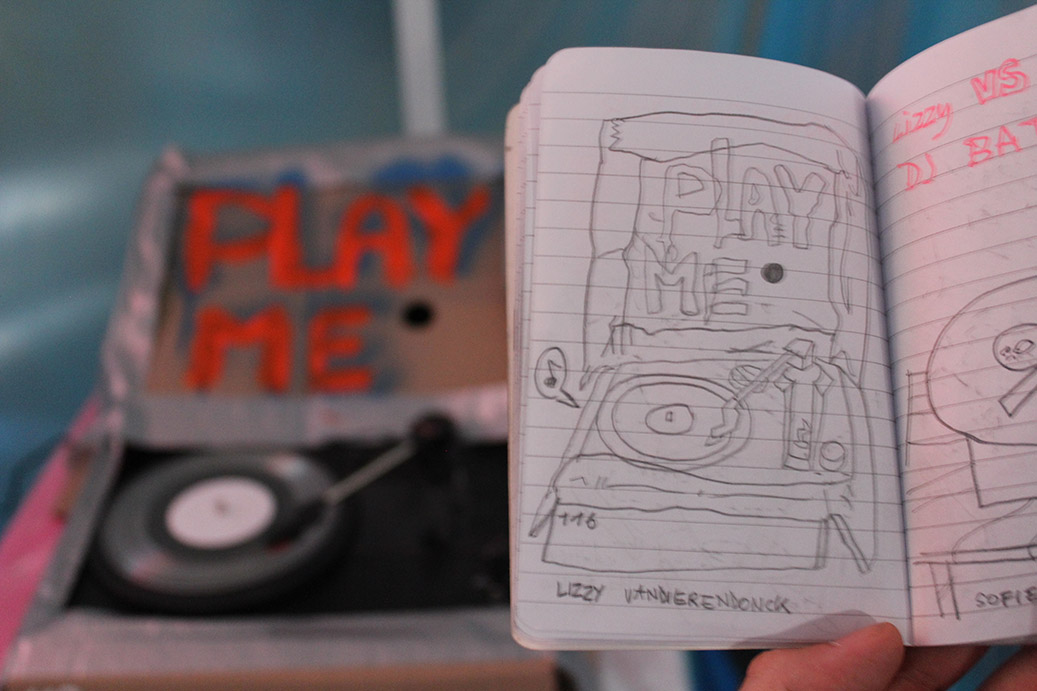 PLAY
ME
PLAY
ME
116
LIZZY VANDIERENDONCK
Lizzy VS
DJ BAT
SOFIE